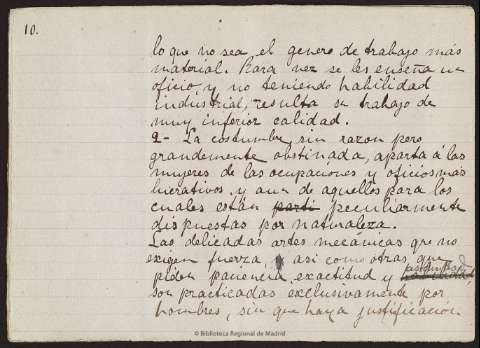 10.
lo que no sea, el genero de trabajo más
material. Rara vez se les enseña un
oficio, y no teniendo habilidad
industrial, resulta su trabajo de
muy inferior calidad.
2- La costumbre, sin razon pero
grandemente obstinada, aparta á las
mujeres de las ocupaciones y oficios más
lucrativos, y aun de aquellos para los
cuales están parti peculiarmente
dispuestas por naturaleza.
Las delicadas artes mecánicas que no
exigen fuerza, asi como otras, que
piden paciencia, exactitud y
son practicadas exclusivamente por
hombres, sin que haya justificación
© Biblioteca Regional de Madrid